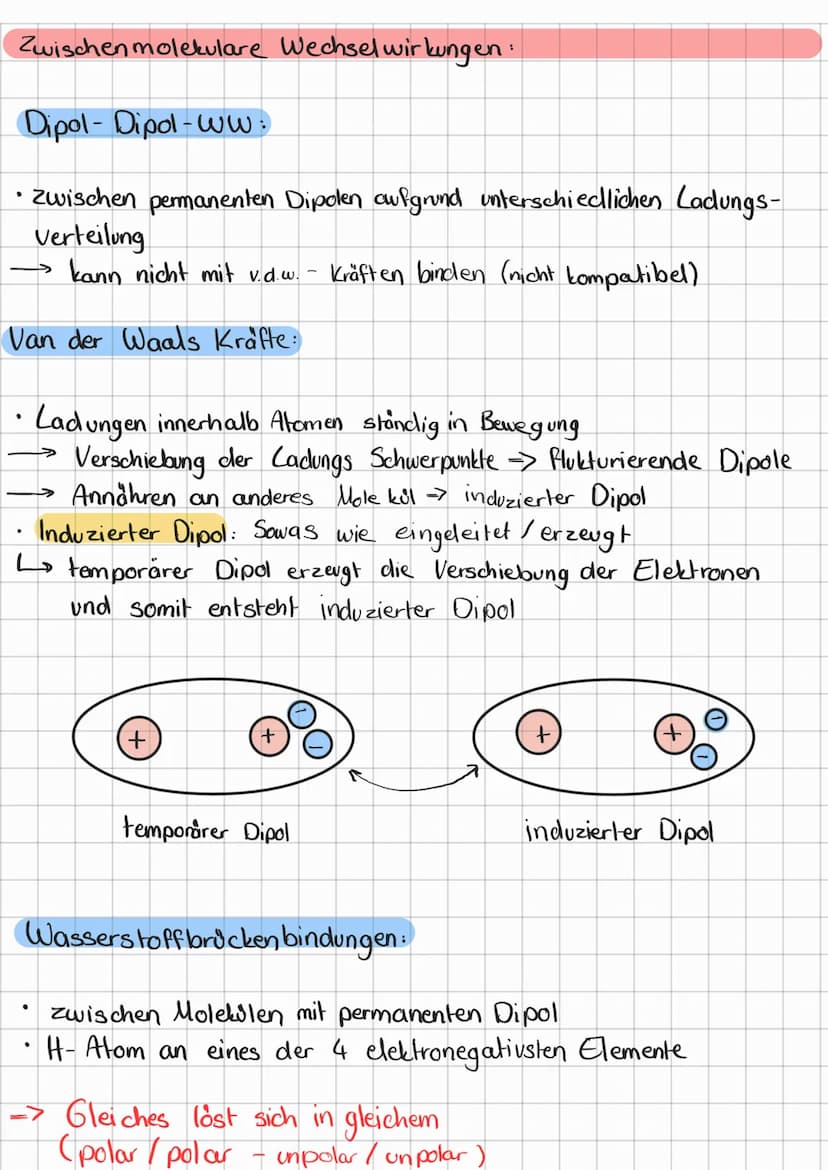 Zwischenmolekulare Wechselwirkungen:
Dipol-Dipol-WW:
· zwischen permanenten Dipolen aufgrund unterschiedlichen Ladungs-
verteilung
→ kann nicht mit v.d.w.- Kräften binden (nicht kompatibel)
Van der Waals Kräfte:
· Ladungen innerhalb Atomen ständig in Bewegung
→ Verschiebung der Ladungs Schwerpunkte => flukturierende Dipole
→ Annähren an anderes Molekül => induzierter Dipol
· Induzierter Dipol: Sowas wie eingeleitet / erzeugt
↳ temporärer Dipol erzeugt die Verschiebung der Elektronen
und somit entsteht induzierter Dipol
+ + - - + + - -
temporärer Dipol induzierter Dipol
Wasserstoffbrückenbindungen:
· zwischen Molekülen mit permanenten Dipol
· H-Atom an eines der 4 elektronegativsten Elemente
=> Gleiches löst sich in gleichem
(polar / polar - unpolar / unpolar)